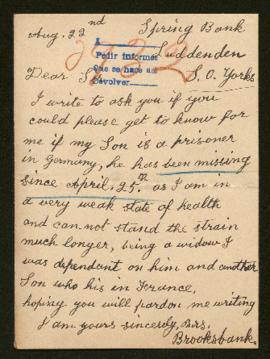 Aug. 22nd Spring Bank
Luddenden
Pedir informes
Que se hace al
devolver
Dear Sir S.O. Yorks
I write to ask you if you
could please get to know for
me if my Son is a prisoner
in Germany, he has been missing
since April, 25th as I am in
a very weak state of health
and can not stand the strain
much longer, being a widow I
was dependant on him and another
Son who his in France,
hoping you will pardon me writing
I am yours sincerely, Mrs.
Brooksbank.